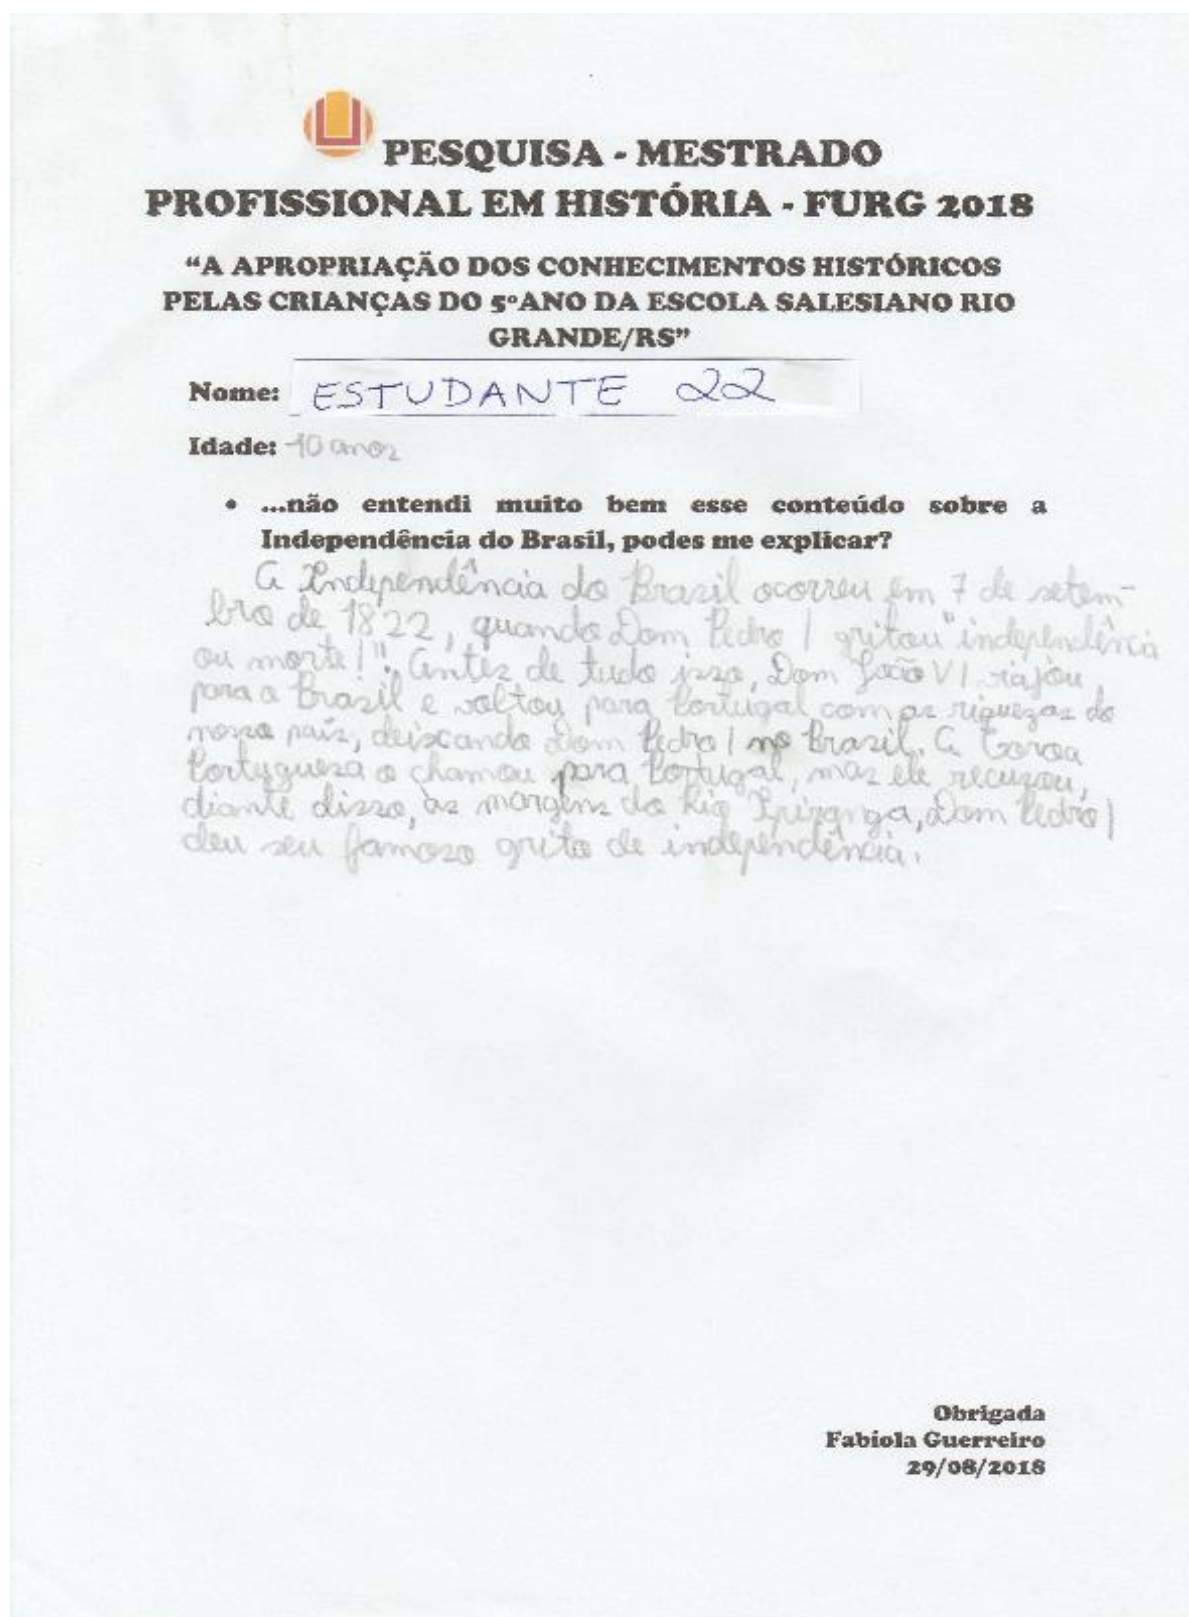 PESQUISA - MESTRADO
PROFISSIONAL EM HISTÓRIA - FURG 2018
“A APROPRIAÇÃO DOS CONHECIMENTOS HISTÓRICOS
PELAS CRIANÇAS DO 5º ANO DA ESCOLA SALESIANO RIO
GRANDE/RS”
Nome: ESTUDANTE 22
Idade: 10 anos
• ...não entendi muito bem esse conteúdo sobre a
Independência do Brasil, podes me explicar?
A Independência do Brasil ocorreu em 7 de setem-
bro de 1822, quando Dom Pedro I gritou "independência
ou morte!". Antes de tudo isso, Dom João VI viajou
para o Brasil e voltou para Portugal com as riquezas do
nosso país, deixando Dom Pedro I no Brasil. A Coroa
Portuguesa o chamou para Portugal, mas ele recusou,
diante disso, às margens do Rio Ipiranga, Dom Pedro I
deu seu famoso grito de independência.
Obrigada
Fabiola Guerreiro
29/08/2018